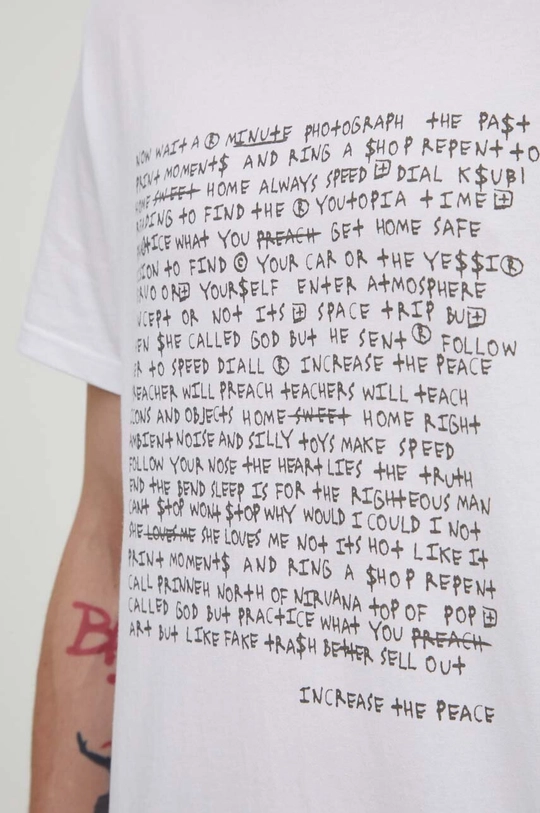 NOW WAIT A ® MINUTE PHOTOGRAPH THE PA$T
PRINT MOMENT$ AND RING A $HOP REPENT TO
HOME SWEET HOME ALWAYS SPEED DIAL K$UBI
READING TO FIND THE ® YOUTOPIA TIME
PRACTICE WHAT YOU PREACH GET HOME SAFE
TO FIND © YOUR CAR OR THE YE$$I®
OR YOUR$ELF ENTER ATMOSPHERE
OR NOT ITS SPACE TRIP BUT
$HE CALLED GOD BUT HE SENT ® FOLLOW
TO SPEED DIALL ® INCREASE THE PEACE
PREACHER WILL PREACH TEACHERS WILL TEACH
AND OBJECTS HOME SWEET HOME RIGHT
AMBIENT NOISE AND SILLY TOYS MAKE SPEED
FOLLOW YOUR NOSE THE HEART LIES THE TRUTH
END THE BEND SLEEP IS FOR THE RIGHTEOUS MAN
CANT $TOP WONT $TOP WHY WOULD I COULD I NOT
SHE LOVES ME SHE LOVES ME NOT ITS HOT LIKE IT
PRINT MOMENT$ AND RING A $HOP REPENT
CALL PRINNEH NORTH OF NIRVANA TOP OF POP
CALLED GOD BUT PRACTICE WHAT YOU PREACH
ART BUT LIKE FAKE TRA$H BETTER SELL OUT
INCREASE THE PEACE